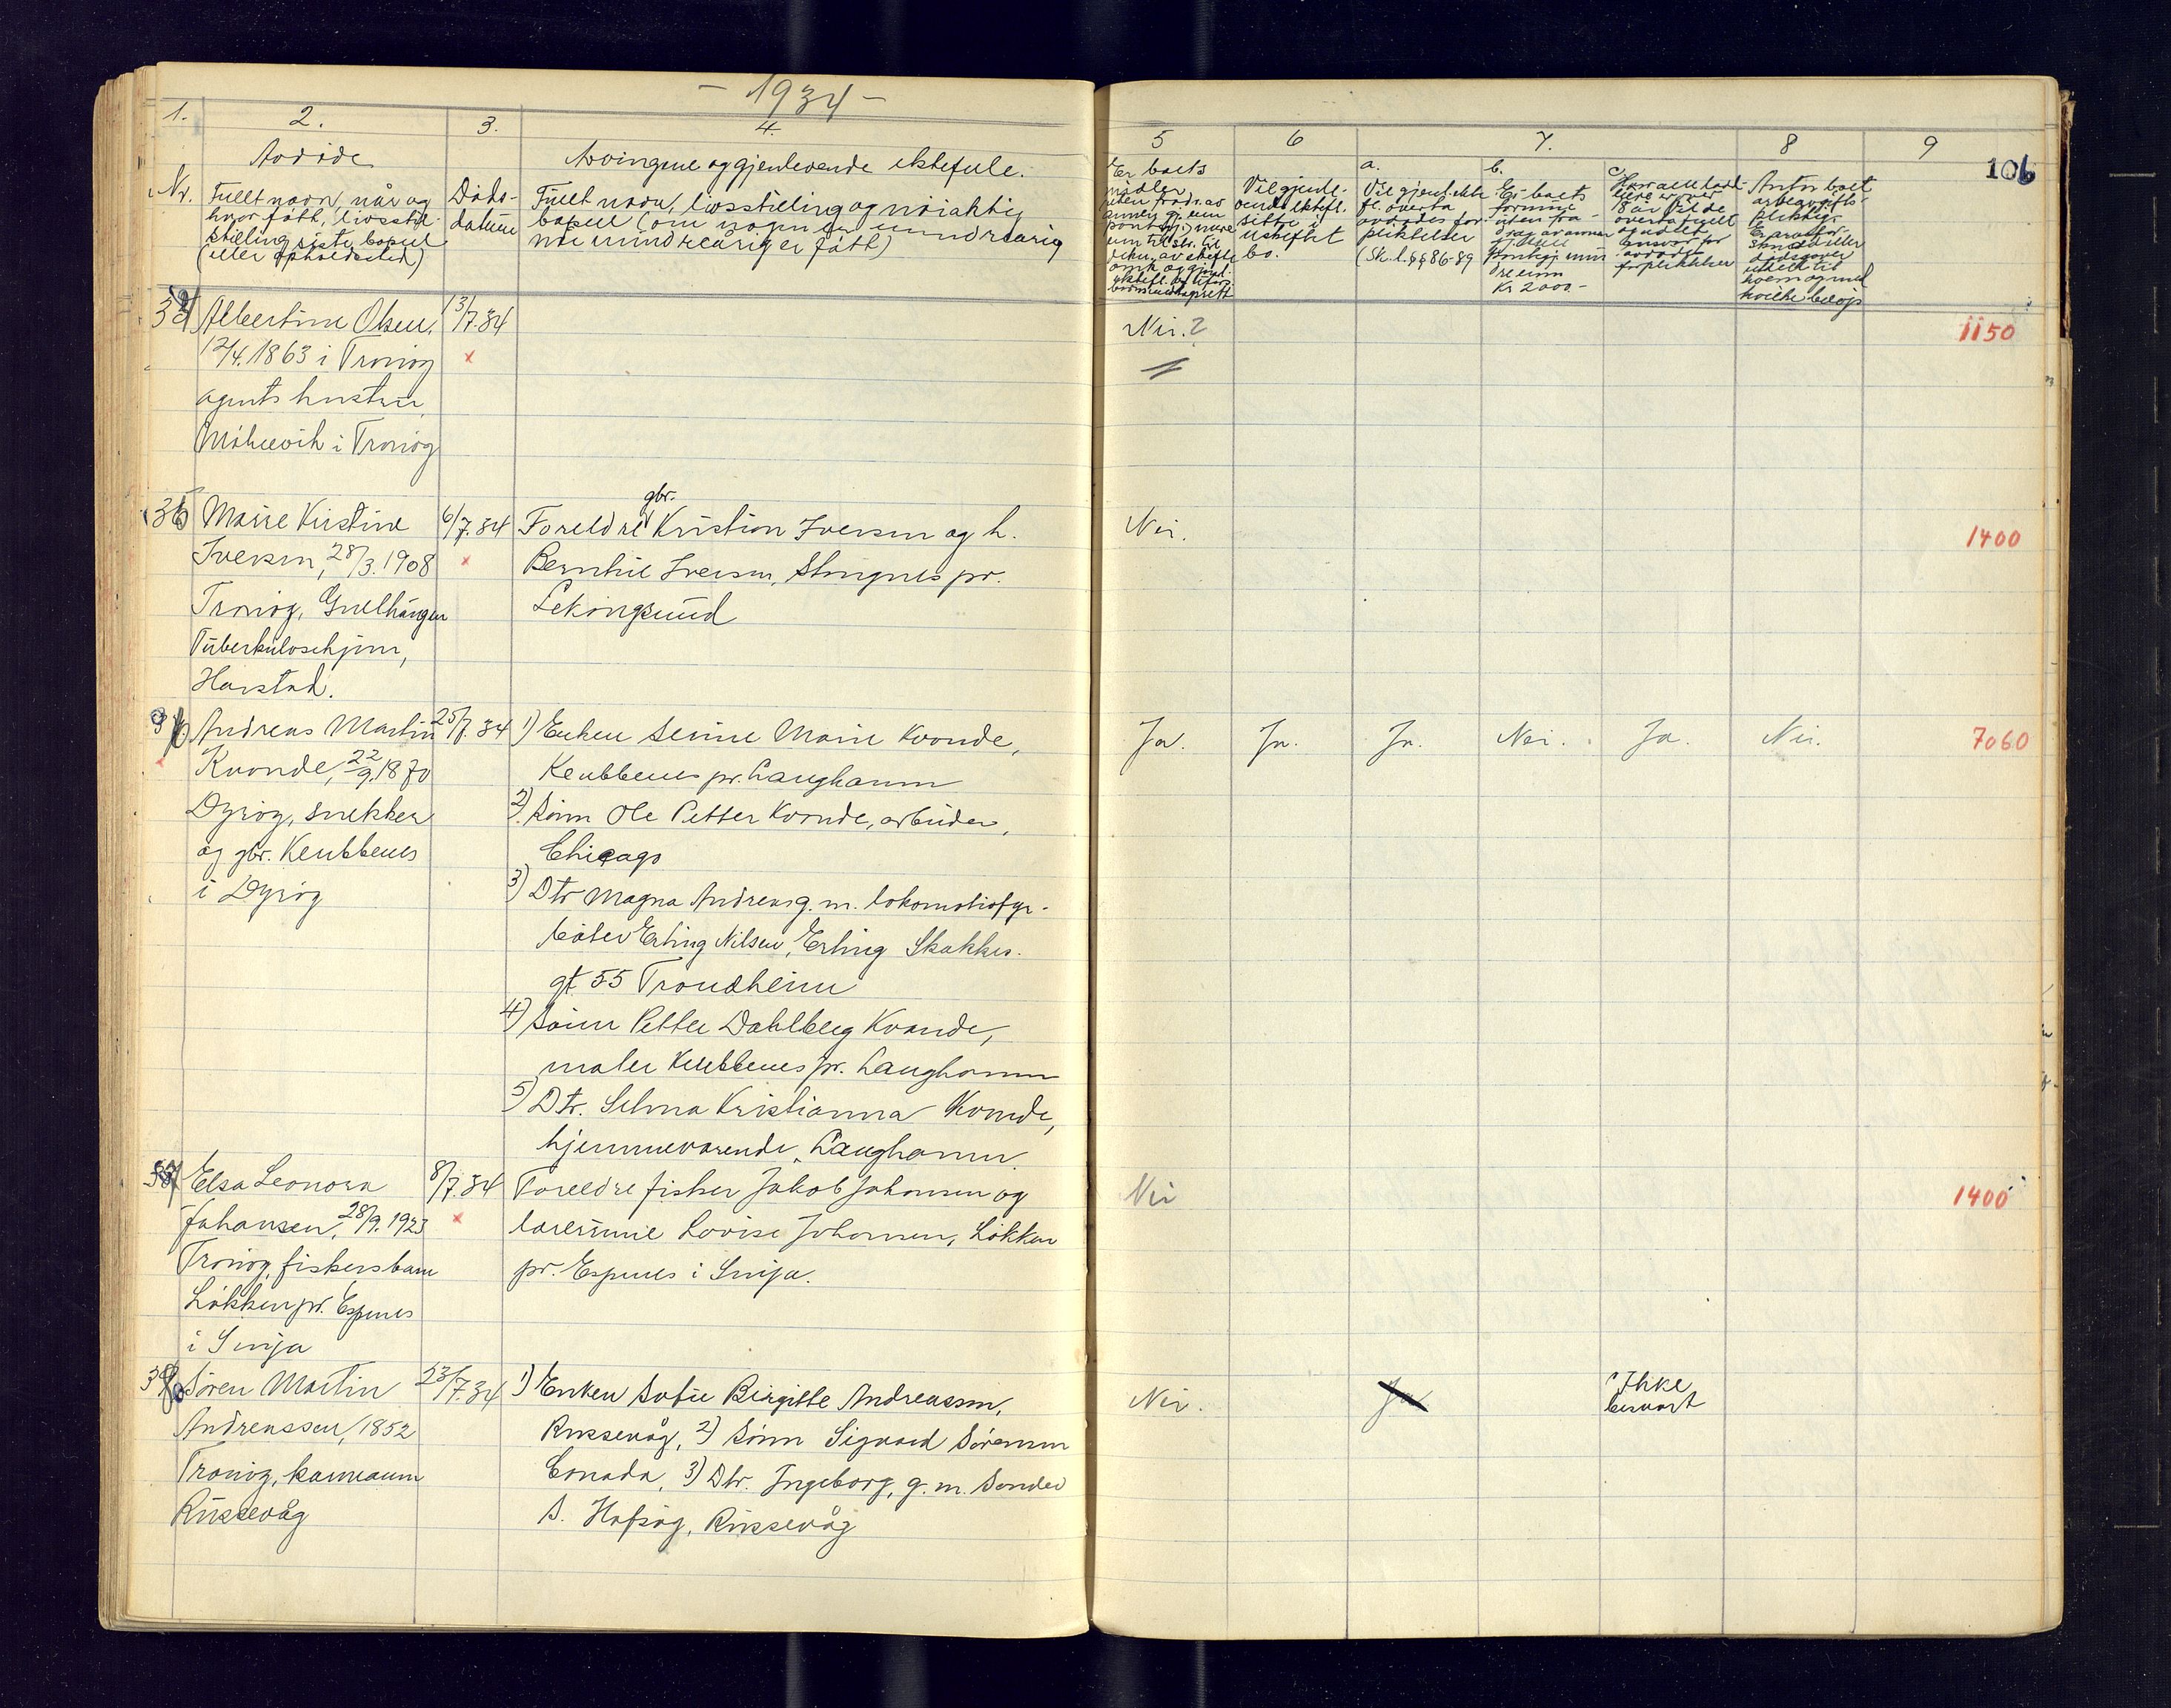 - 1934 -
1. 2. 3. 4.
Avdøde Arvingene og gjenlevende ektefelle.
Nr. Fullt navn, når og
hvor født, livsstil-
stilling siste bopel
(eller opholdssted)
Døds-
datum
Fullt navn, livsstilling og nøiaktig
bopel (om nogen er mindreårig
når mindreårig er født)
5 6 7. 8 9
106
Er boets
midler
Vil gjenle-
vende ektefl.
sitte i
uskiftet
bo.
a.
Vil gjenl. ekte
fl. overta
avdødes for-
pliktelser
(Sk. l. §§ 86-89
b.
Er boets
formue
uten fra-
drag av
Kr 2000.-
c.
overta fullt
ansvar for
avdødes
forpliktelser
Antas boet
arveavgifts-
pliktig.
hvilke beløp
Albertine Olsen, 13/7.34
12/4.1863 i Tranøy
agents hustru,
i Tranøy
Nei.?
1150
36 Marie Kristine
Iversen, 28/3.1908
Tranøy, Gullhaugen
Tuberkulosehjem,
Harstad.
6/7.34
Foreldre gbr. Kristian Iversen og h.
Bernthie Iversen, Stongnes pr.
Lekangsund
Nei.
1400
Andreas Martin
Kvande, 22/9.1870
Dyrøy, snekker
og gbr. Klubbenes
i Dyrøy
25/7.34
1) Enken Senine Marie Kvande,
Klubbenes pr. Langhamn
2) Sønn Ole Petter Kvande, arbeider,
Chicago
3) Dtr Magna Andrea g. m. lokomotivfyr-
bøter Erling Nilsen, Erling Skakkes-
gt 55 Trondheim
4) Sønn Petter Dahlberg Kvande,
maler Klubbenes pr. Langhamn
5) Dtr. Selma Kristianna Kvande,
hjemmeværende, Langhamn.
Ja. Ja. Ja. Nei. Ja. Nei.
7060
37 Elsa Leonora
Johansen, 28/9.1923
Tranøy, fiskersbarn
Løkken pr. Espenes
i Senja
8/7.34
Foreldre fisker Jakob Johansen og
lærerinne Lovise Johansen, Løkken
pr. Espenes i Senja.
Nei
1400
38 Søren Martin
Andreassen, 1852
Tranøy, kårmann
Russevåg
23/7.34
1) Enken Sofie Birgitte Andreassen,
Russevåg, 2) Sønn Sigvard Sørensen
Canada, 3) Dtr. Ingeborg, g. m. Sander
S. Hofsøy, Russevåg
Nei.
Ja
Ikke
besvart